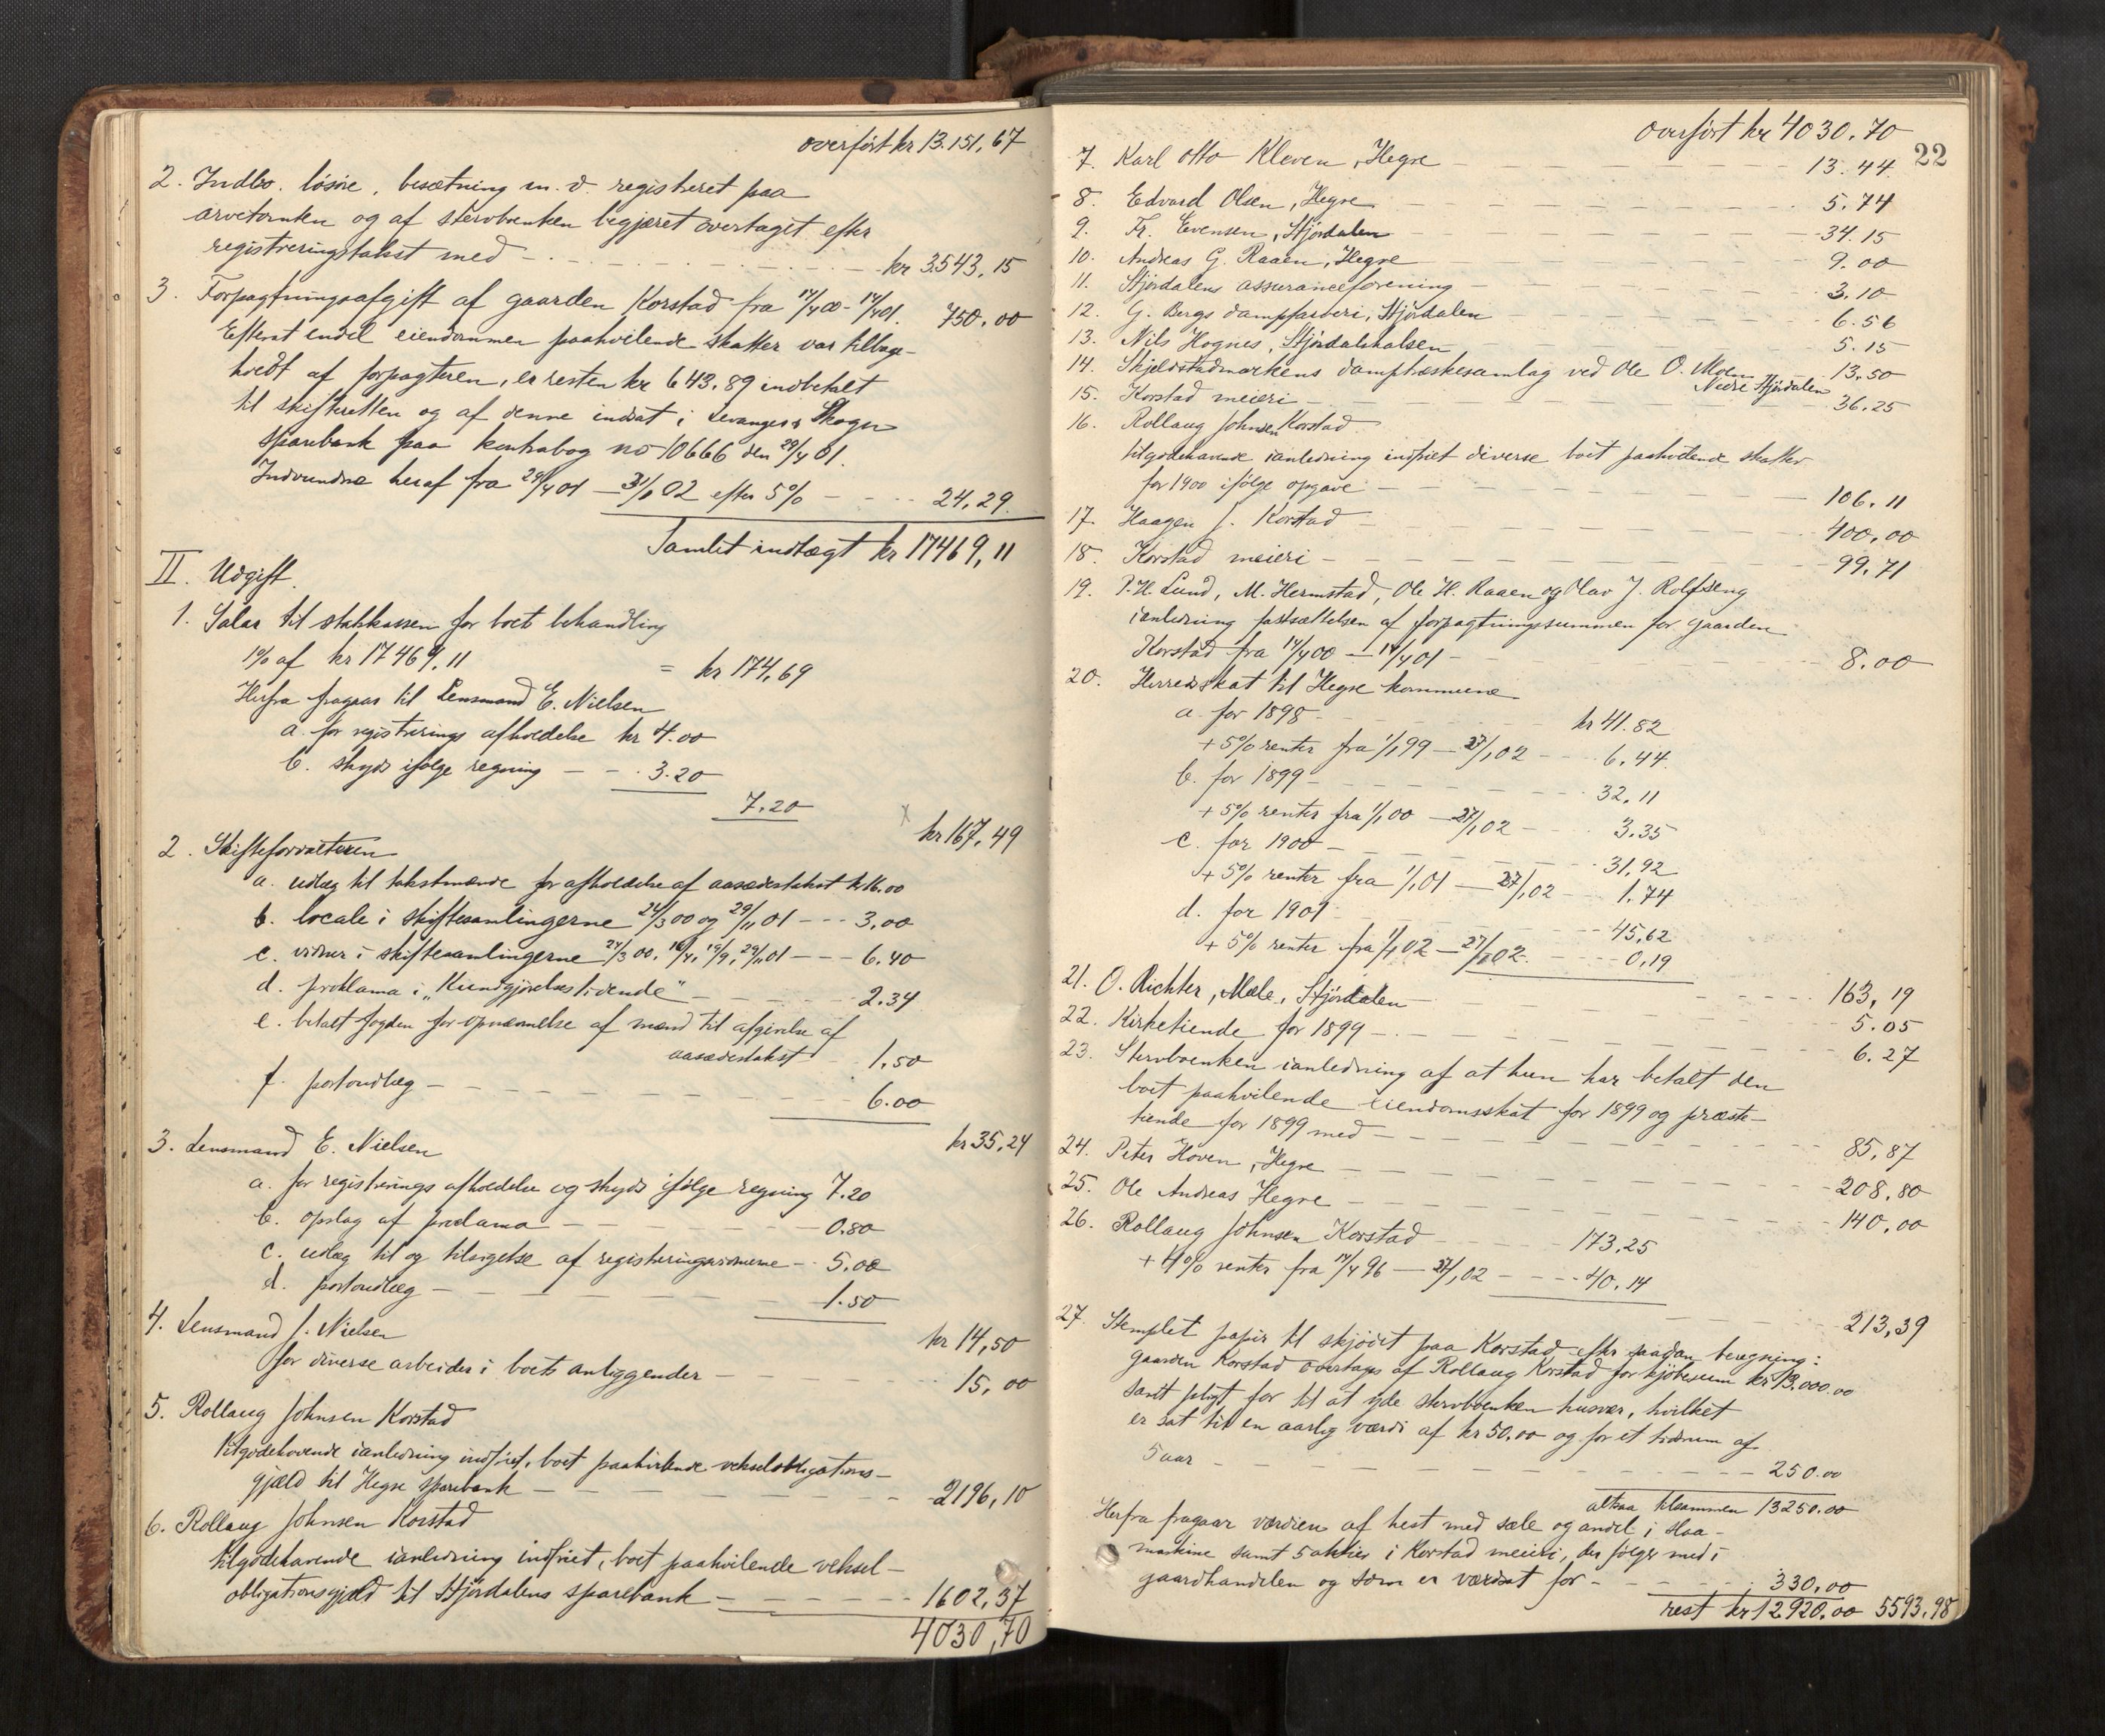 overført kr 13.151,67
2. Indbo, løsøre, besætning m. v. registreret paa
arvetomten og af stervboenken begjæret overtaget efter
registreringstakst med - - - - - kr 3543,15
3. Forpagtningsafgift af gaarden Korstad fra 14/4 00 - 14/4 01. 750,00
Efterat endel eiendommen paahvilende skatter var tilbage-
holdt af forpagteren, er resten kr 643.89 indbetalt
til skifteretten og af denne indsat i Levanger & Skogn
sparebank paa kontrabog no 10666 den 29/4 01.
Indvundne heraf fra 29/4 01 - 31/1 02 efter 5% - - - 24,29.
Samlet indtægt kr 17469,11
II. Udgift.
1. Salær til statskassen for boets behandling
1% af kr 17469,11 = kr 174,69
Herfra fragaar til Lensmand E. Nielsen
a. for registrerings afholdelse kr 4.00
b. skyds ifølge regning - - 3.20
7.20
x kr 167,49
2. Skifteforvalteren
a. udlæg til takstmænde for afholdelse af aasædestakst kr 16.00
b. locale i skiftesamlingerne 24/3 00 og 29/11 01 - - - 3,00
c. vidner i skiftesamlingerne 24/3 00, 16/4, 19/9, 29/11 01 - - - 6.40
d. proklama i „Kundgjørelsestidende" - - - 2.34
e. betalt fogden for opnævnelse af mænd til afgivelse af
aasædestakst 1,50
f. portoudlæg - - - - 6.00
kr 35,24
3. Lensmand E. Nielsen
a. for registrerings afholdelse og skyds ifølge regning 7.20
b. opslag af proclama - - - - 0.80
c. udlæg til og tilsigelse af registreringsvidnerne - - 5.00
d. portoudlæg - - - - 1.50
kr 14,50
4. Lensmand J. Nielsen
for diverse arbeider i boets anliggender - - - - 15,00
5. Rollaug Johnsen Korstad
tilgodehavende ianledning indfriet, boet paahvilende vekselobligations-
gjæld til Hegre sparebank - - - - 2196,10
6. Rollaug Johnsen Korstad
tilgodehavende ianledning indfriet, boet paahvilende veksel-
obligationsgjæld til Stjørdalens sparebank - - - - 1602,37
4030,70
overført kr 4030.70
22
7. Karl Otto Kleven, Hegre - - - - 13.44
8. Edvard Olsen, Hegre - - - - 5.74
9. Fr. Evensen, Stjørdalen - - - - 34.15
10. Andreas G. Raaen, Hegre - - - - 9.00
11. Stjørdalens assuranceforening - - - - 3.10
12. G. Bergs dampfarveri, Stjørdalen - - - - 6.56
13. Nils Hognes, Stjørdalshalsen - - - - 5.15
14. Skjelstadmarkens damptræskesamlag ved Ole O. Moen 13.50
Nedre Stjørdalen
15. Korstad meieri - - - - 36.25
16. Rollaug Johnsen Korstad
tilgodehavende ianledning indfriet diverse boet paahvilende skatter
for 1900 ifølge opgave - - - - 106.11
17. Haagen J. Korstad - - - - 400,00
18. Korstad meieri - - - - 99,71
19. P. H. Lund, M. Hermstad, Ole H. Raaen og Olav J. Rolfseng
ianledning fastsættelsen af forpagtningssummen for gaarden
Korstad fra 14/4 00 - 14/4 01 - - - - 8.00
20. Herredsskat til Hegre kommune
a. for 1898 - - - - kr 41.82
+ 5% renter fra 1/1 99 - 27/1 02 - - - 6.44
b. for 1899 - - - - 32,11
+ 5% renter fra 1/1 00 - 27/1 02 - - - 3.35
c. for 1900 - - - - 31,92
+ 5% renter fra 1/1 01 - 27/1 02 - - - 1.74
d. for 1901 - - - - 45,62
+ 5% renter fra 1/1 02 - 27/1 02. - - - 0,19
163,19
21. O. Richter, Mæle, Stjørdalen - - - - 5.05
22. Kirketiende for 1899 - - - - 6.27
23. Stervboenken ianledning af at hun har betalt den
boet paahvilende eiendomsskat for 1899 og præste-
tiende for 1899 med - - - - 85,87
24. Peter Hoven, Hegre - - - - 208,80
25. Ole Andreas Hegre - - - - 140,00
26. Rollaug Johnsen Korstad - - - 173,25
+ 4% renter fra 14/4 96 - 27/1 02 - - - 40.14
213,39
27. Stemplet papir til skjødet paa Korstad efter saadan beregning:
gaarden Korstad overtages af Rollaug Korstad for kjøbesum kr 13.000.00
samt pligt for til at yde stervboenken husvær, hvilket
er sat til en aarlig værdi af kr 50,00 og for et tidsrum af
5 aar - - - - 250.00
altsaa tilsammen 13250.00
Herfra fragaar værdien af hest med sæle og andel i slaa-
maskine samt 5 aktier i Korstad meieri, der følger med i
gaardhandelen og som er værdsat for - - - - 330,00
rest kr 12920,00 5593,98